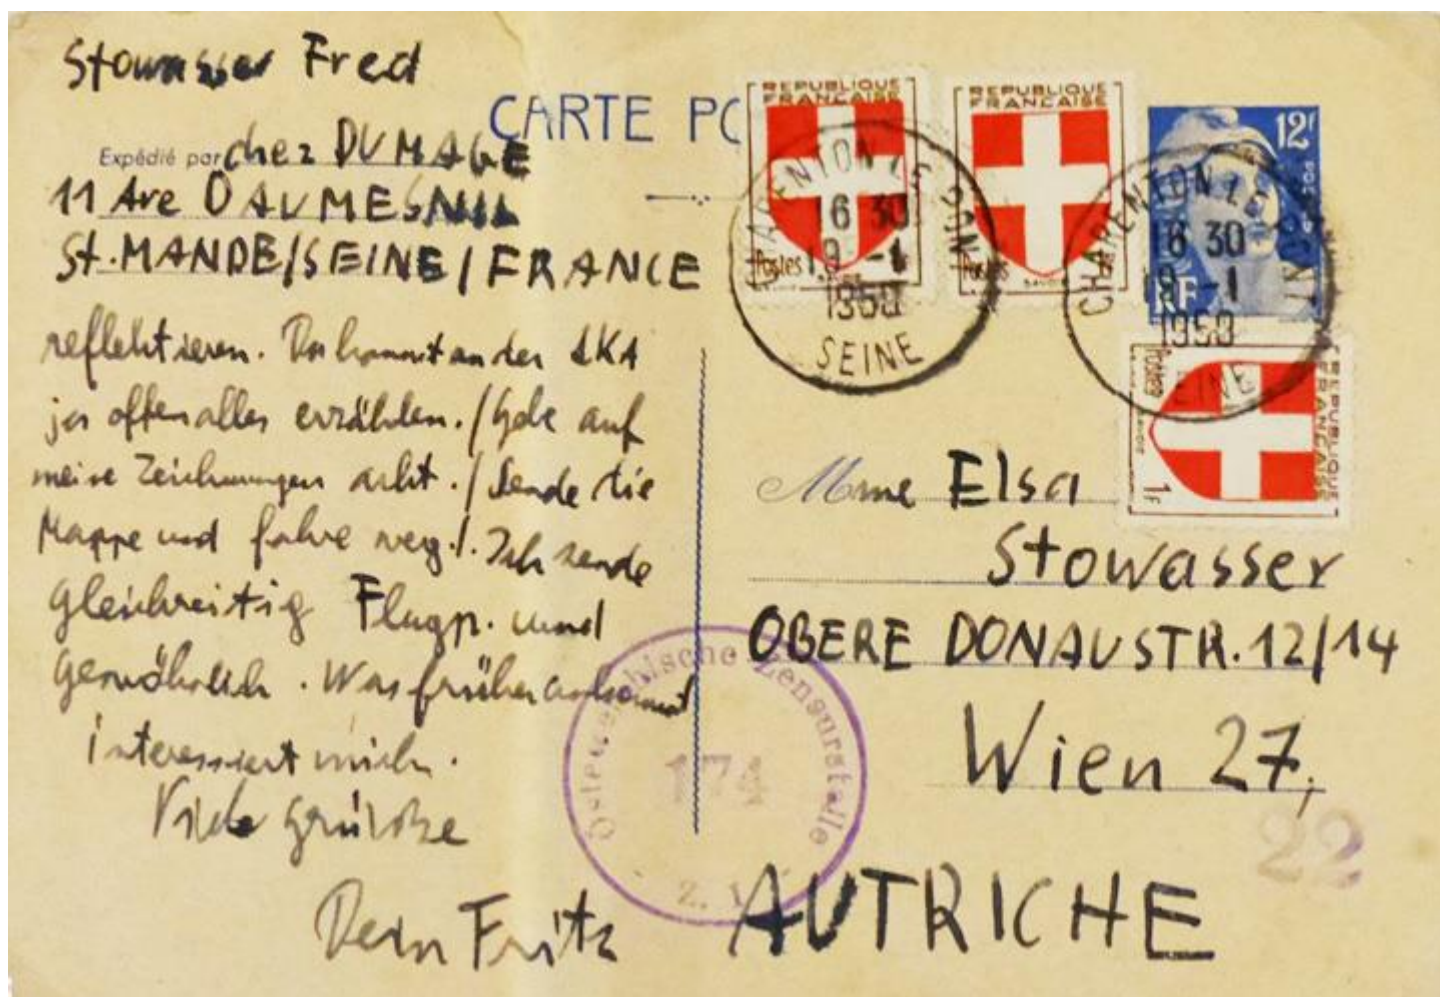 Stowasser Fred
CARTE PO
Expédié par chez DUMAGE
11 Ave DAUMESNIL
St. MANDE/SEINE/FRANCE
reflektieren. Du kannst an der AKA
ja offen alles erzählen. / Gebe auf
meine Zeichnungen acht. / Sende die
Mappe und fahre weg. /. Ich sende
gleichzeitig Flugp. und
gewöhnlich. Was früher ankommt
interessiert mich.
Viele Grüsse
Dein Fritz
REPUBLIQUE
FRANCAISE
Postes
SAVOIE
REPUBLIQUE
FRANCAISE
Postes
SAVOIE
12F
POSTES
RF
REPUBLIQUE
FRANCAISE
Postes
SAVOIE
1F
CHARENTON LE PONT
16 30
19 -1
1950
SEINE
CHARENTON LE PONT
16 30
19 -1
1950
SEINE
Mme Elsa
Stowasser
OBERE DONAUSTR. 12/14
Wien 27,
AUTRICHE
Österreichische Zensurstelle
Z. 1
22